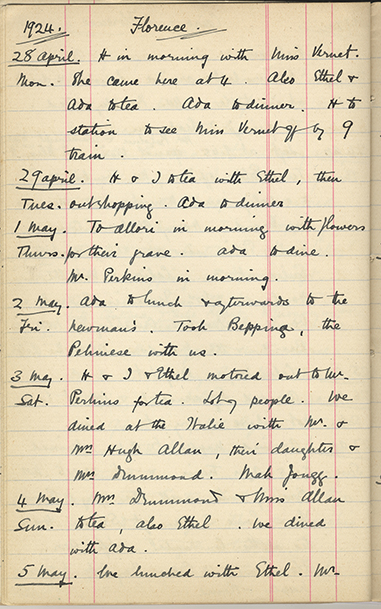 1924. Florence.
28 April. H in morning with Miss Vernet.
Mon. She came here at 4. Also Ethel &
Ada to tea. Ada to dinner. H to
station to see Miss Vernet off by 9
train.
29 April. H & I to tea with Ethel, then
Tues. out shopping. Ada to dinner
1 May. To Allori in morning with flowers
Thurs. for their grave. Ada to dine.
Mr. Perkins in morning.
2 May. Ada to lunch & afterwards to the
Fri. Newman's. Took Bepping, the
Pekinese with us.
3 May. H & I & Ethel motored out to Mr.
Sat. Perkins for tea. Lot of people. We
dined at the Italie with Mr. &
Mrs Hugh Allan, their daughter &
Mrs Drummond. Mah Jongg.
4 May. Mrs Drummond & Miss Allan
Sun. to tea, also Ethel. We dined
with Ada.
5 May. We lunched with Ethel. Mr.